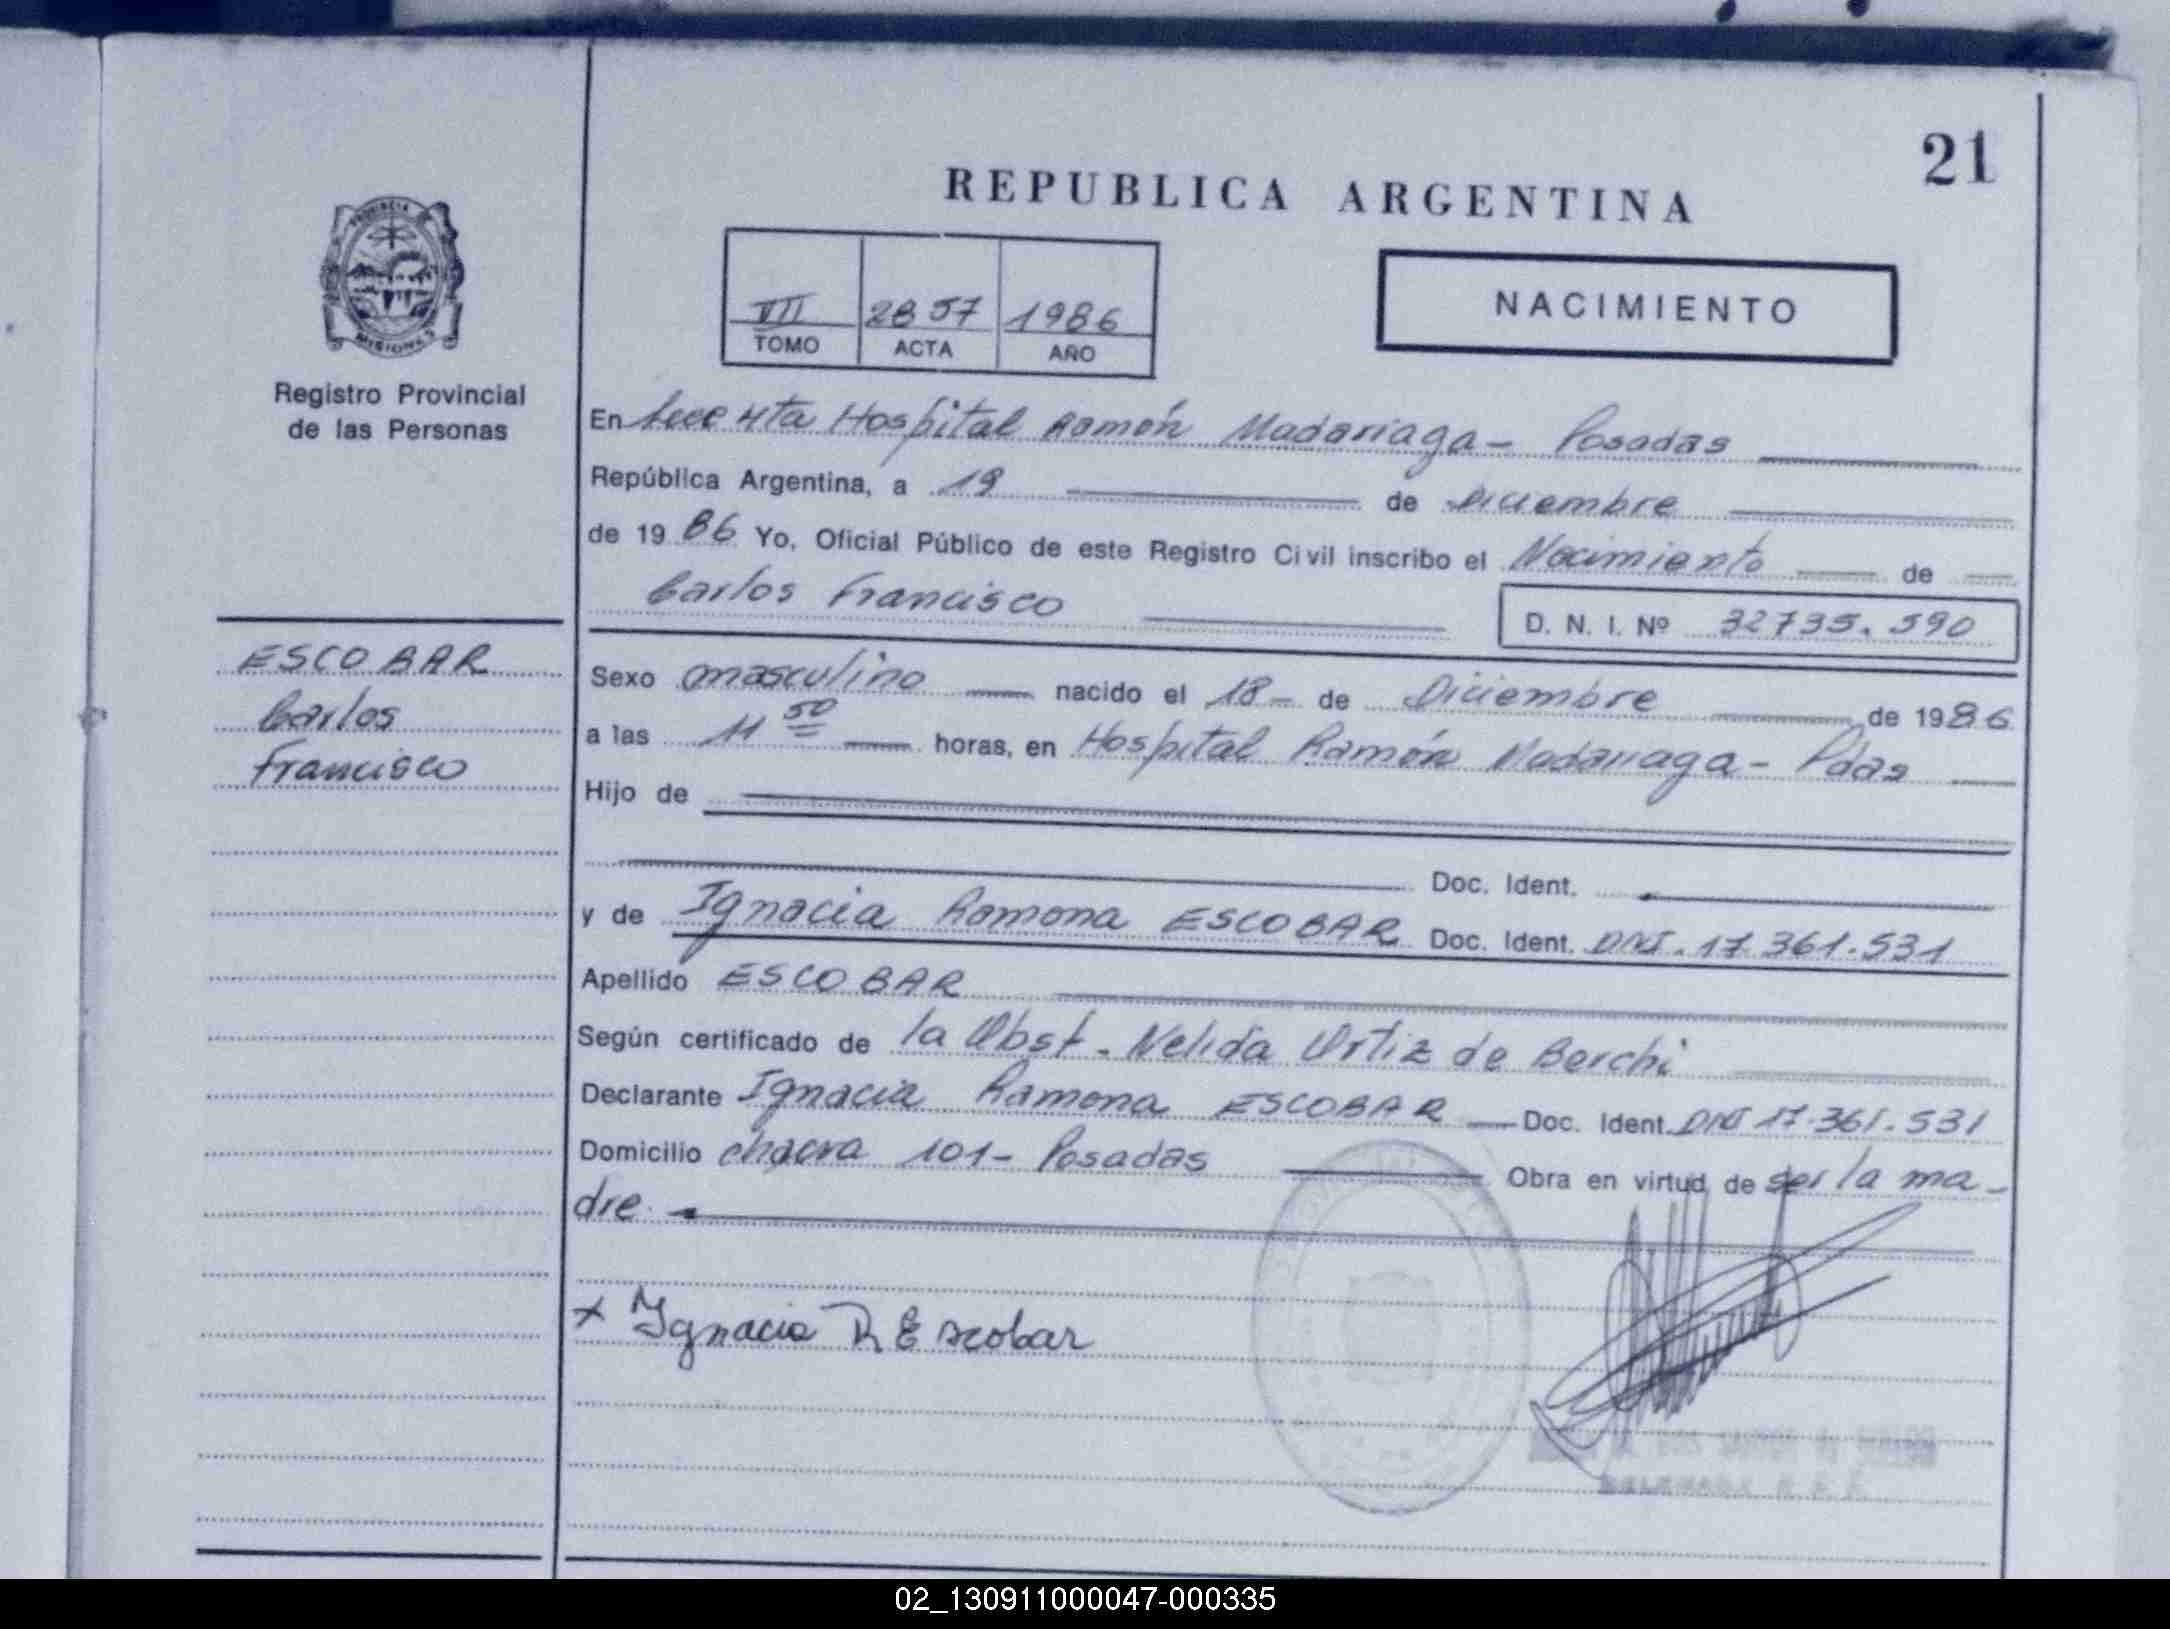 21
REPUBLICA ARGENTINA
PROVINCIA
MISIONES
Registro Provincial
de las Personas
VII 2857 1986
TOMO ACTA AÑO
NACIMIENTO
En 4ta Hospital Ramón Madariaga - Posadas
República Argentina, a 19 de Diciembre
de 1986 Yo, Oficial Público de este Registro Civil inscribo el Nacimiento de
Carlos Francisco
D. N. I. Nº 32735.590
ESCOBAR
Carlos
Francisco
Sexo masculino nacido el 18- de Diciembre de 1986
a las 11 50 horas, en Hospital Ramón Madariaga - Pdas
Hijo de
Doc. Ident.
y de Ignacia Ramona ESCOBAR Doc. Ident. DNI. 17.361.531
Apellido ESCOBAR
Según certificado de la Obst. Nelida Ortiz de Berchi
Declarante Ignacia Ramona ESCOBAR Doc. Ident. DNI 17.361.531
Domicilio chacra 101- Posadas Obra en virtud de ser la ma-
dre.
x Ignacia R Escobar
02_130911000047-000335